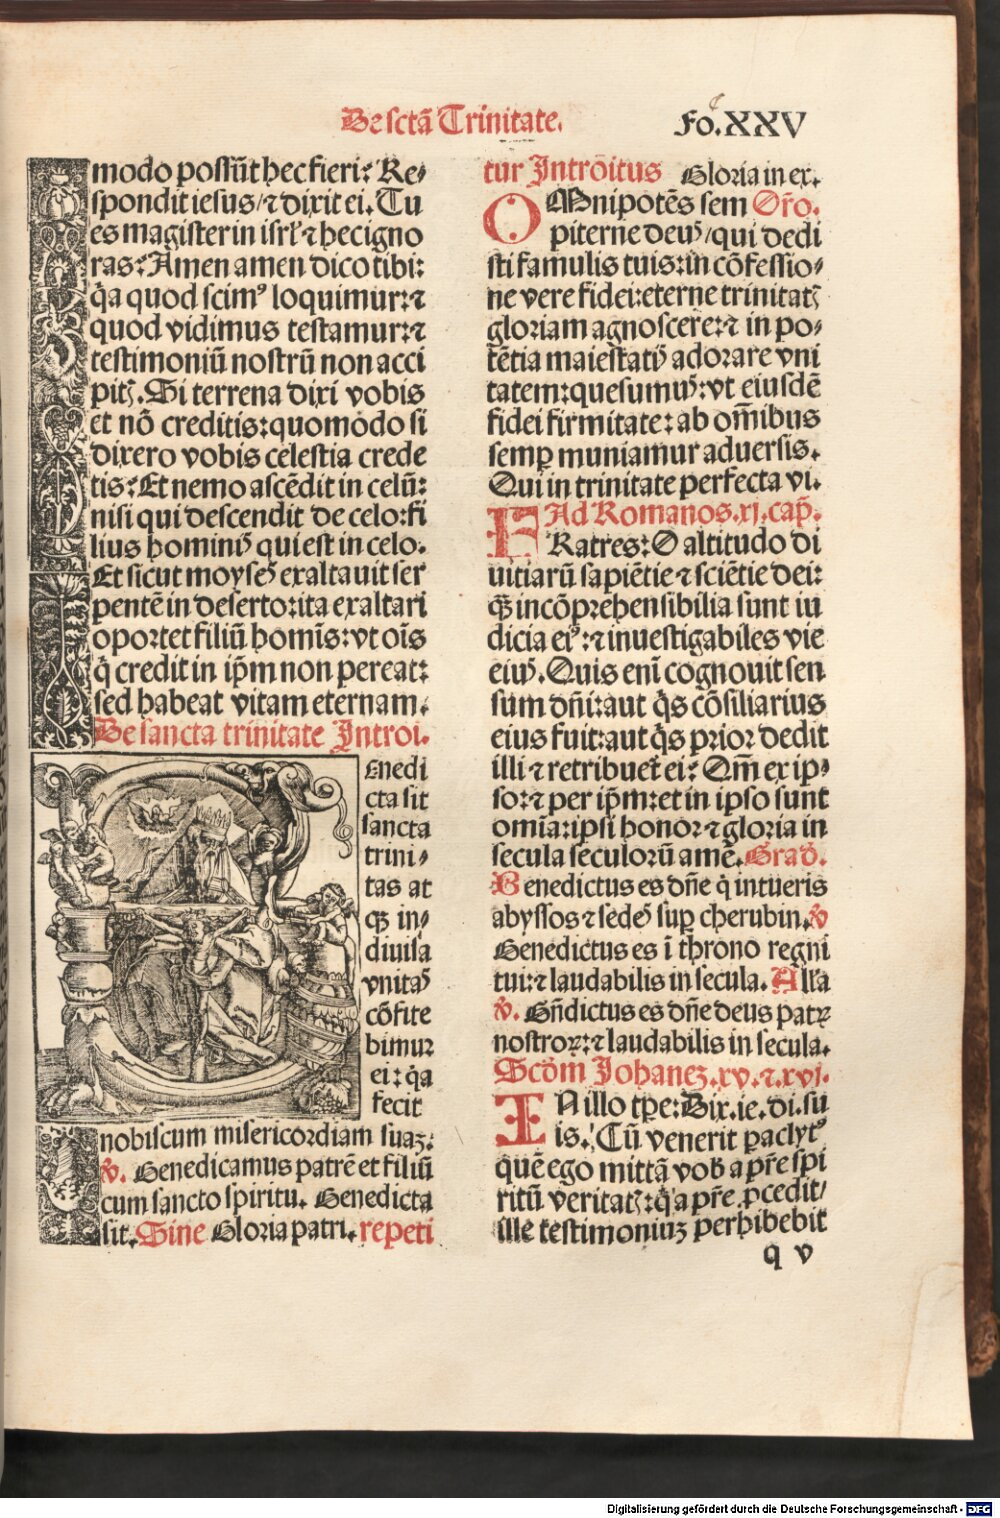 De sctā Trinitate.
Fo. XXV
modo possūt hec fieri: Re-
spondit iesus / ⁊ dixit ei. Tu
es magister in isrl' ⁊ hec igno
ras: Amen amen dico tibi:
q̄a quod scimꝰ loquimur: ⁊
quod vidimus testamur: ⁊
testimoniū nostrū non acci
pitꝭ. Si terrena dixi vobis
et nō creditis: quomodo si
dixero vobis celestia crede
tis: Et nemo ascēdit in celū:
nisi qui descendit de celo: fi
lius hominꝭ qui est in celo.
Et sicut moyseꝭ exaltauit ser
pentē in deserto: ita exaltari
oportet filiū homīs: vt oīs
q̇ credit in ip̄m non pereat:
sed habeat vitam eternam.
De sancta trinitate Introi.
enedi
cta sit
sancta
trini-
tas at
qꝫ in-
diuisa
vnitaꝭ
cōfite
bimur
ei: q̄a
fecit
nobiscum misericordiam suaꝫ.
℣. Benedicamus patrē et filiū
cum sancto spiritu. Benedicta
sit. Sine Gloria patri. repeti
tur Introitus Gloria in ex.
OMnipotēs sem Or̄o.
piterne deuꝰ / qui dedi
sti famulis tuis: in cōfessio-
ne vere fidei: eterne trinitatꝭ
gloriam agnoscere: ⁊ in po-
tētia maiestatꝭ adorare vni
tatem: quesumuꝰ: vt eiusdē
fidei firmitate: ab om̄ibus
semꝑ muniamur aduersis.
Qui in trinitate perfecta vi.
Ad Romanos. xj. cap̄.
FRatres: O altitudo di
uitiarū sapiētie ⁊ sciētie dei:
qꝫ incōprehensibilia sunt iu
dicia eiꝰ: ⁊ inuestigabiles vie
eiuꝰ. Quis enī cognouit sen
sum dn̄i: aut q̇s cōsiliarius
eius fuit: aut q̇s prior dedit
illi ⁊ retribuet̄ ei: Qm̄ ex ip-
so: ⁊ per ip̄m: et in ipso sunt
omīa: ipsi honor ⁊ gloria in
secula seculorū amē. Grad.
Benedictus es dn̄e q̇ intueris
abyssos ⁊ sedeꝭ suꝑ cherubin. ℣
Benedictus es ī throno regni
tui: ⁊ laudabilis in secula. Alla
℣. Bn̄dictus es dn̄e deus patꝝ
nostroꝝ: ⁊ laudabilis in secula.
Scōm Johaneꝫ. xv. ⁊. xvj.
IN illo tꝑe: Dix. ie. di. su
is. Cū venerit ꝑaclytꝰ
quē ego mittā vob̄ a pr̄e spi
ritū veritatꝭ: q̇a pr̄e ꝓcedit /
ille testimoniuꝫ perhibebit
q v
Digitalisierung gefördert durch die Deutsche Forschungsgemeinschaft - DFG